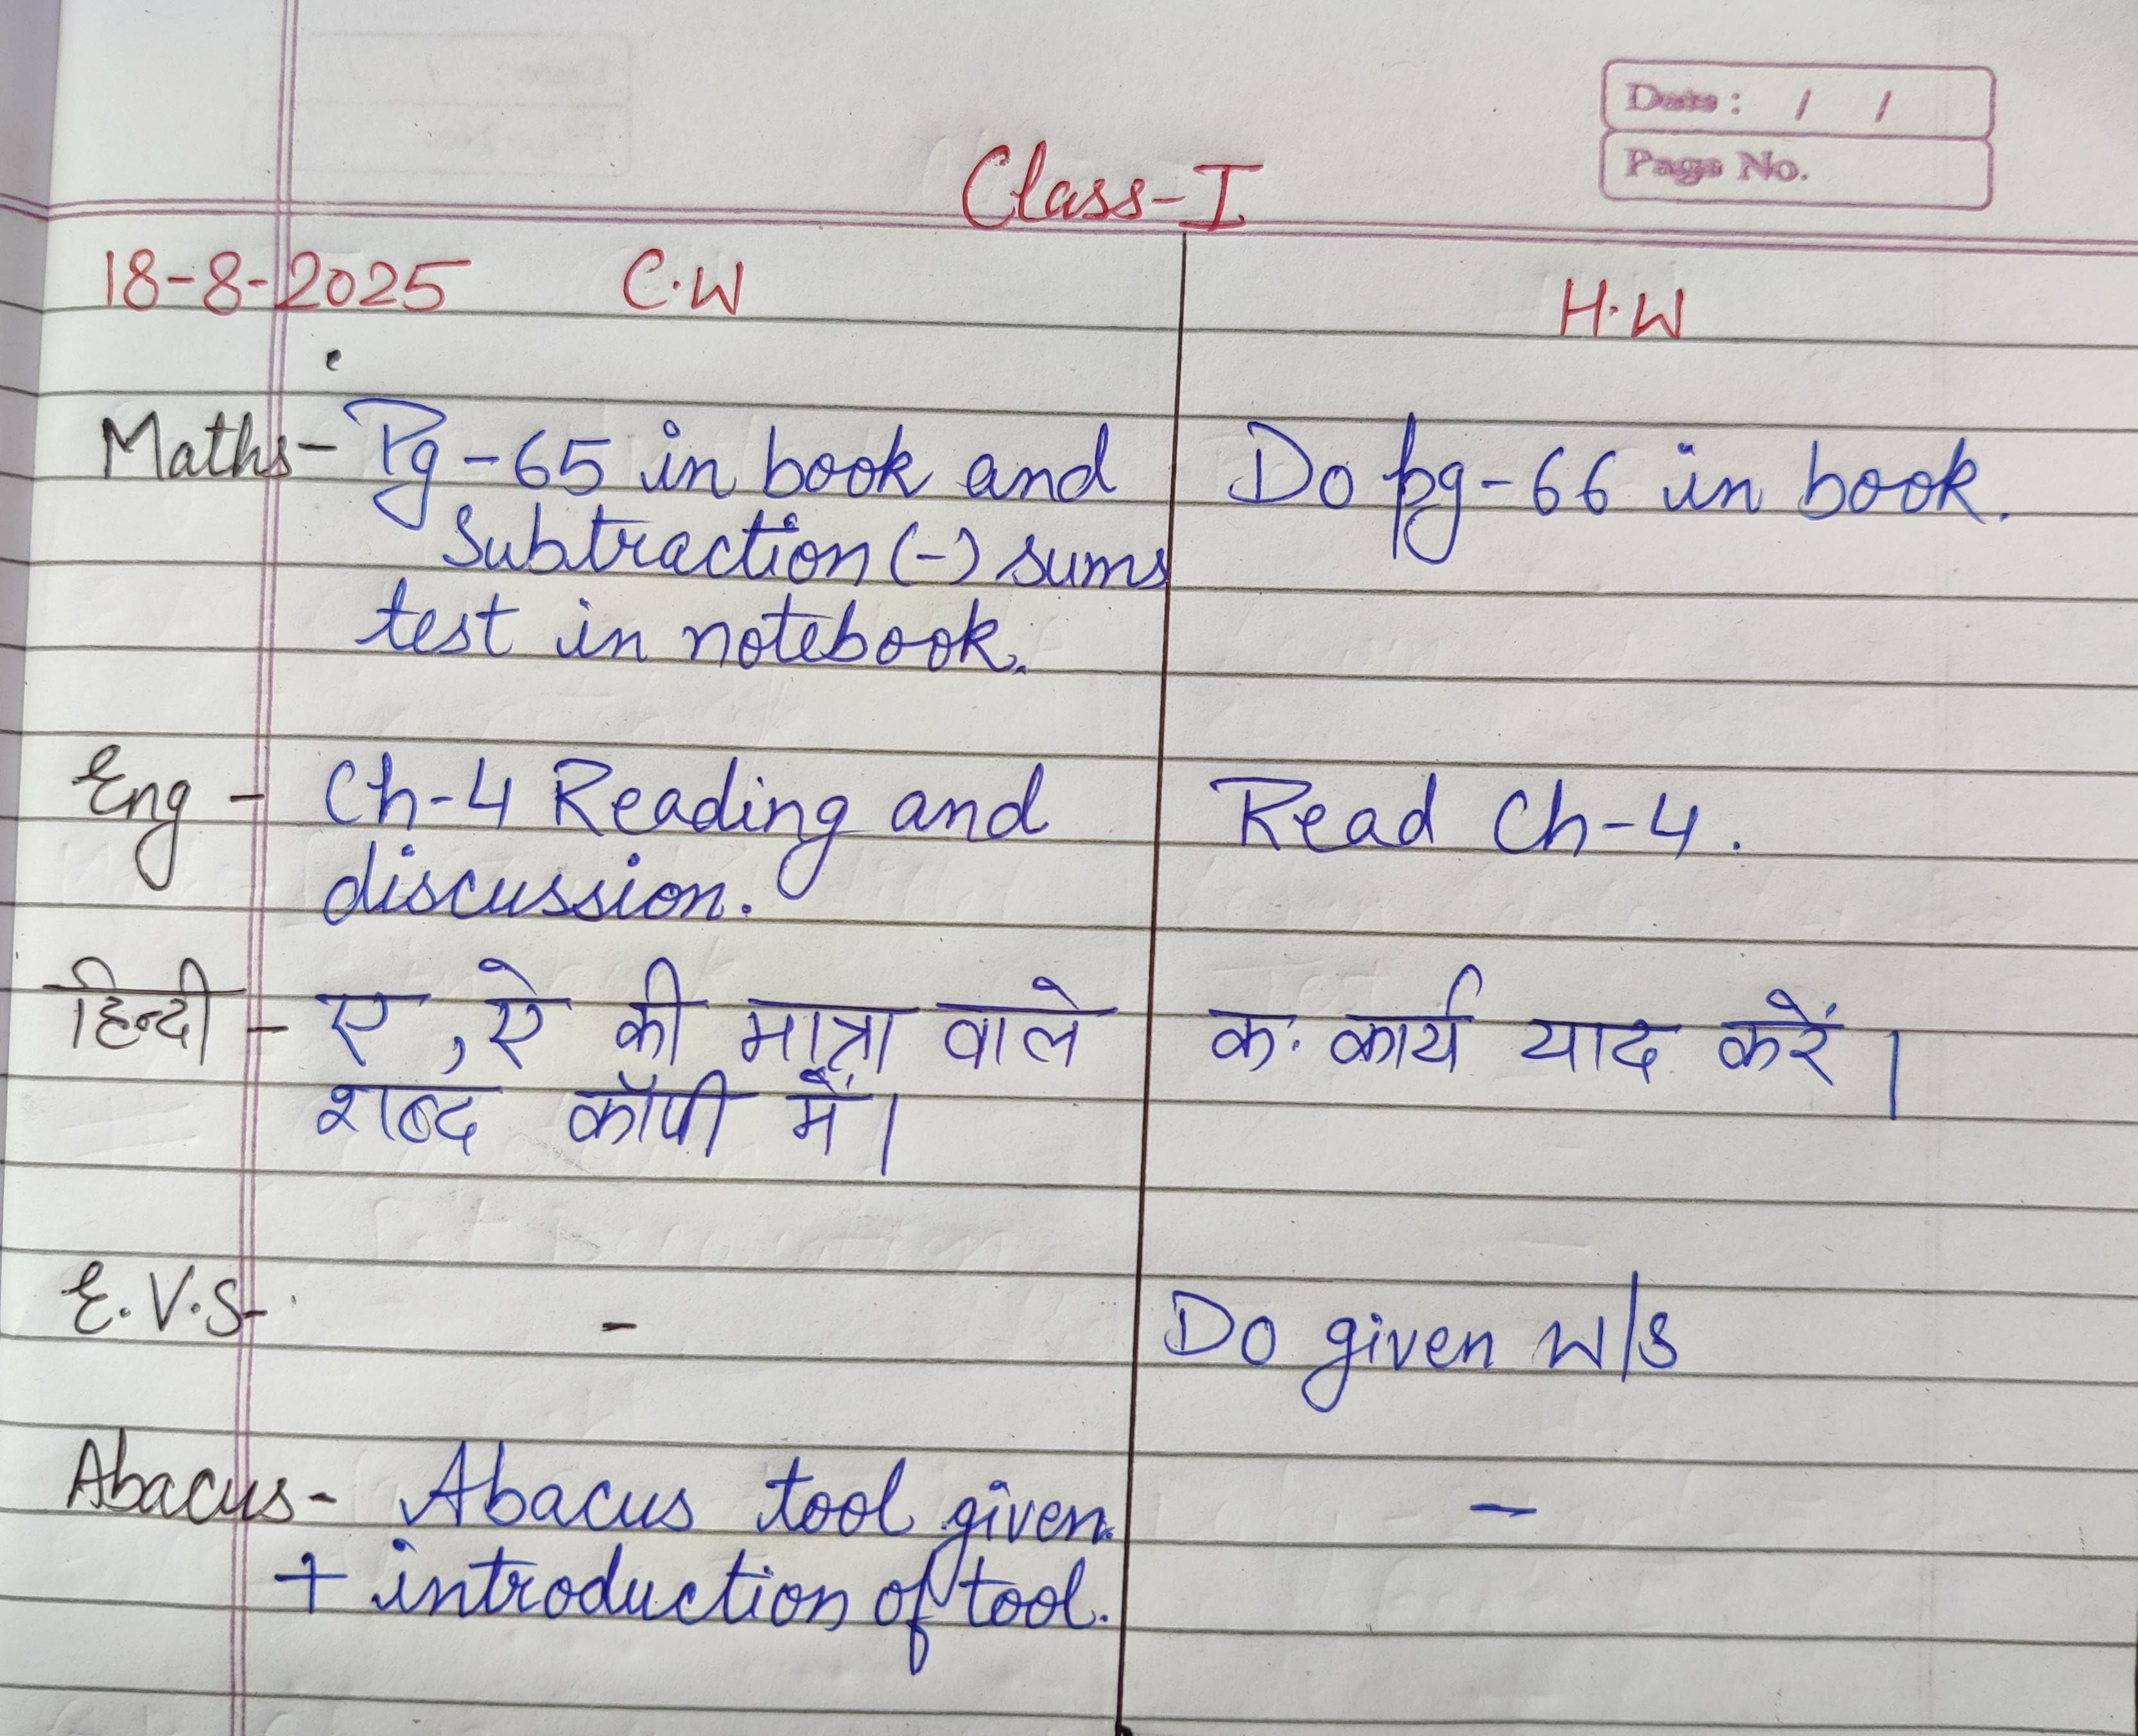 Date : / /
Page No.
Class-I
18-8-2025 C.W H.W
Maths- Pg-65 in book and Do pg-66 in book.
Subtraction (-) sums
test in notebook.
Eng - Ch-4 Reading and Read Ch-4.
discussion.
हिन्दी - ए, ऐ की मात्रा वाले क. कार्य याद करें।
शब्द कॉपी में।
E.V.S- - Do given w/s
Abacus- Abacus tool given. -
+ introduction of tool.